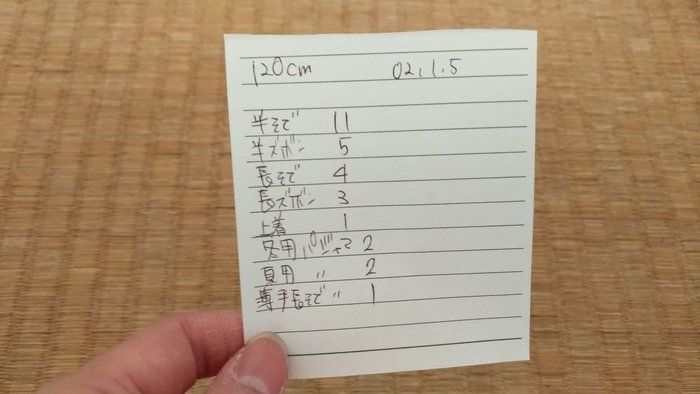 120cm 02.1.5
半そで 11
半ズボン 5
長そで 4
長ズボン 3
上着 1
冬用パジャマ 2
夏用 〃 2
薄手長そで〃 1